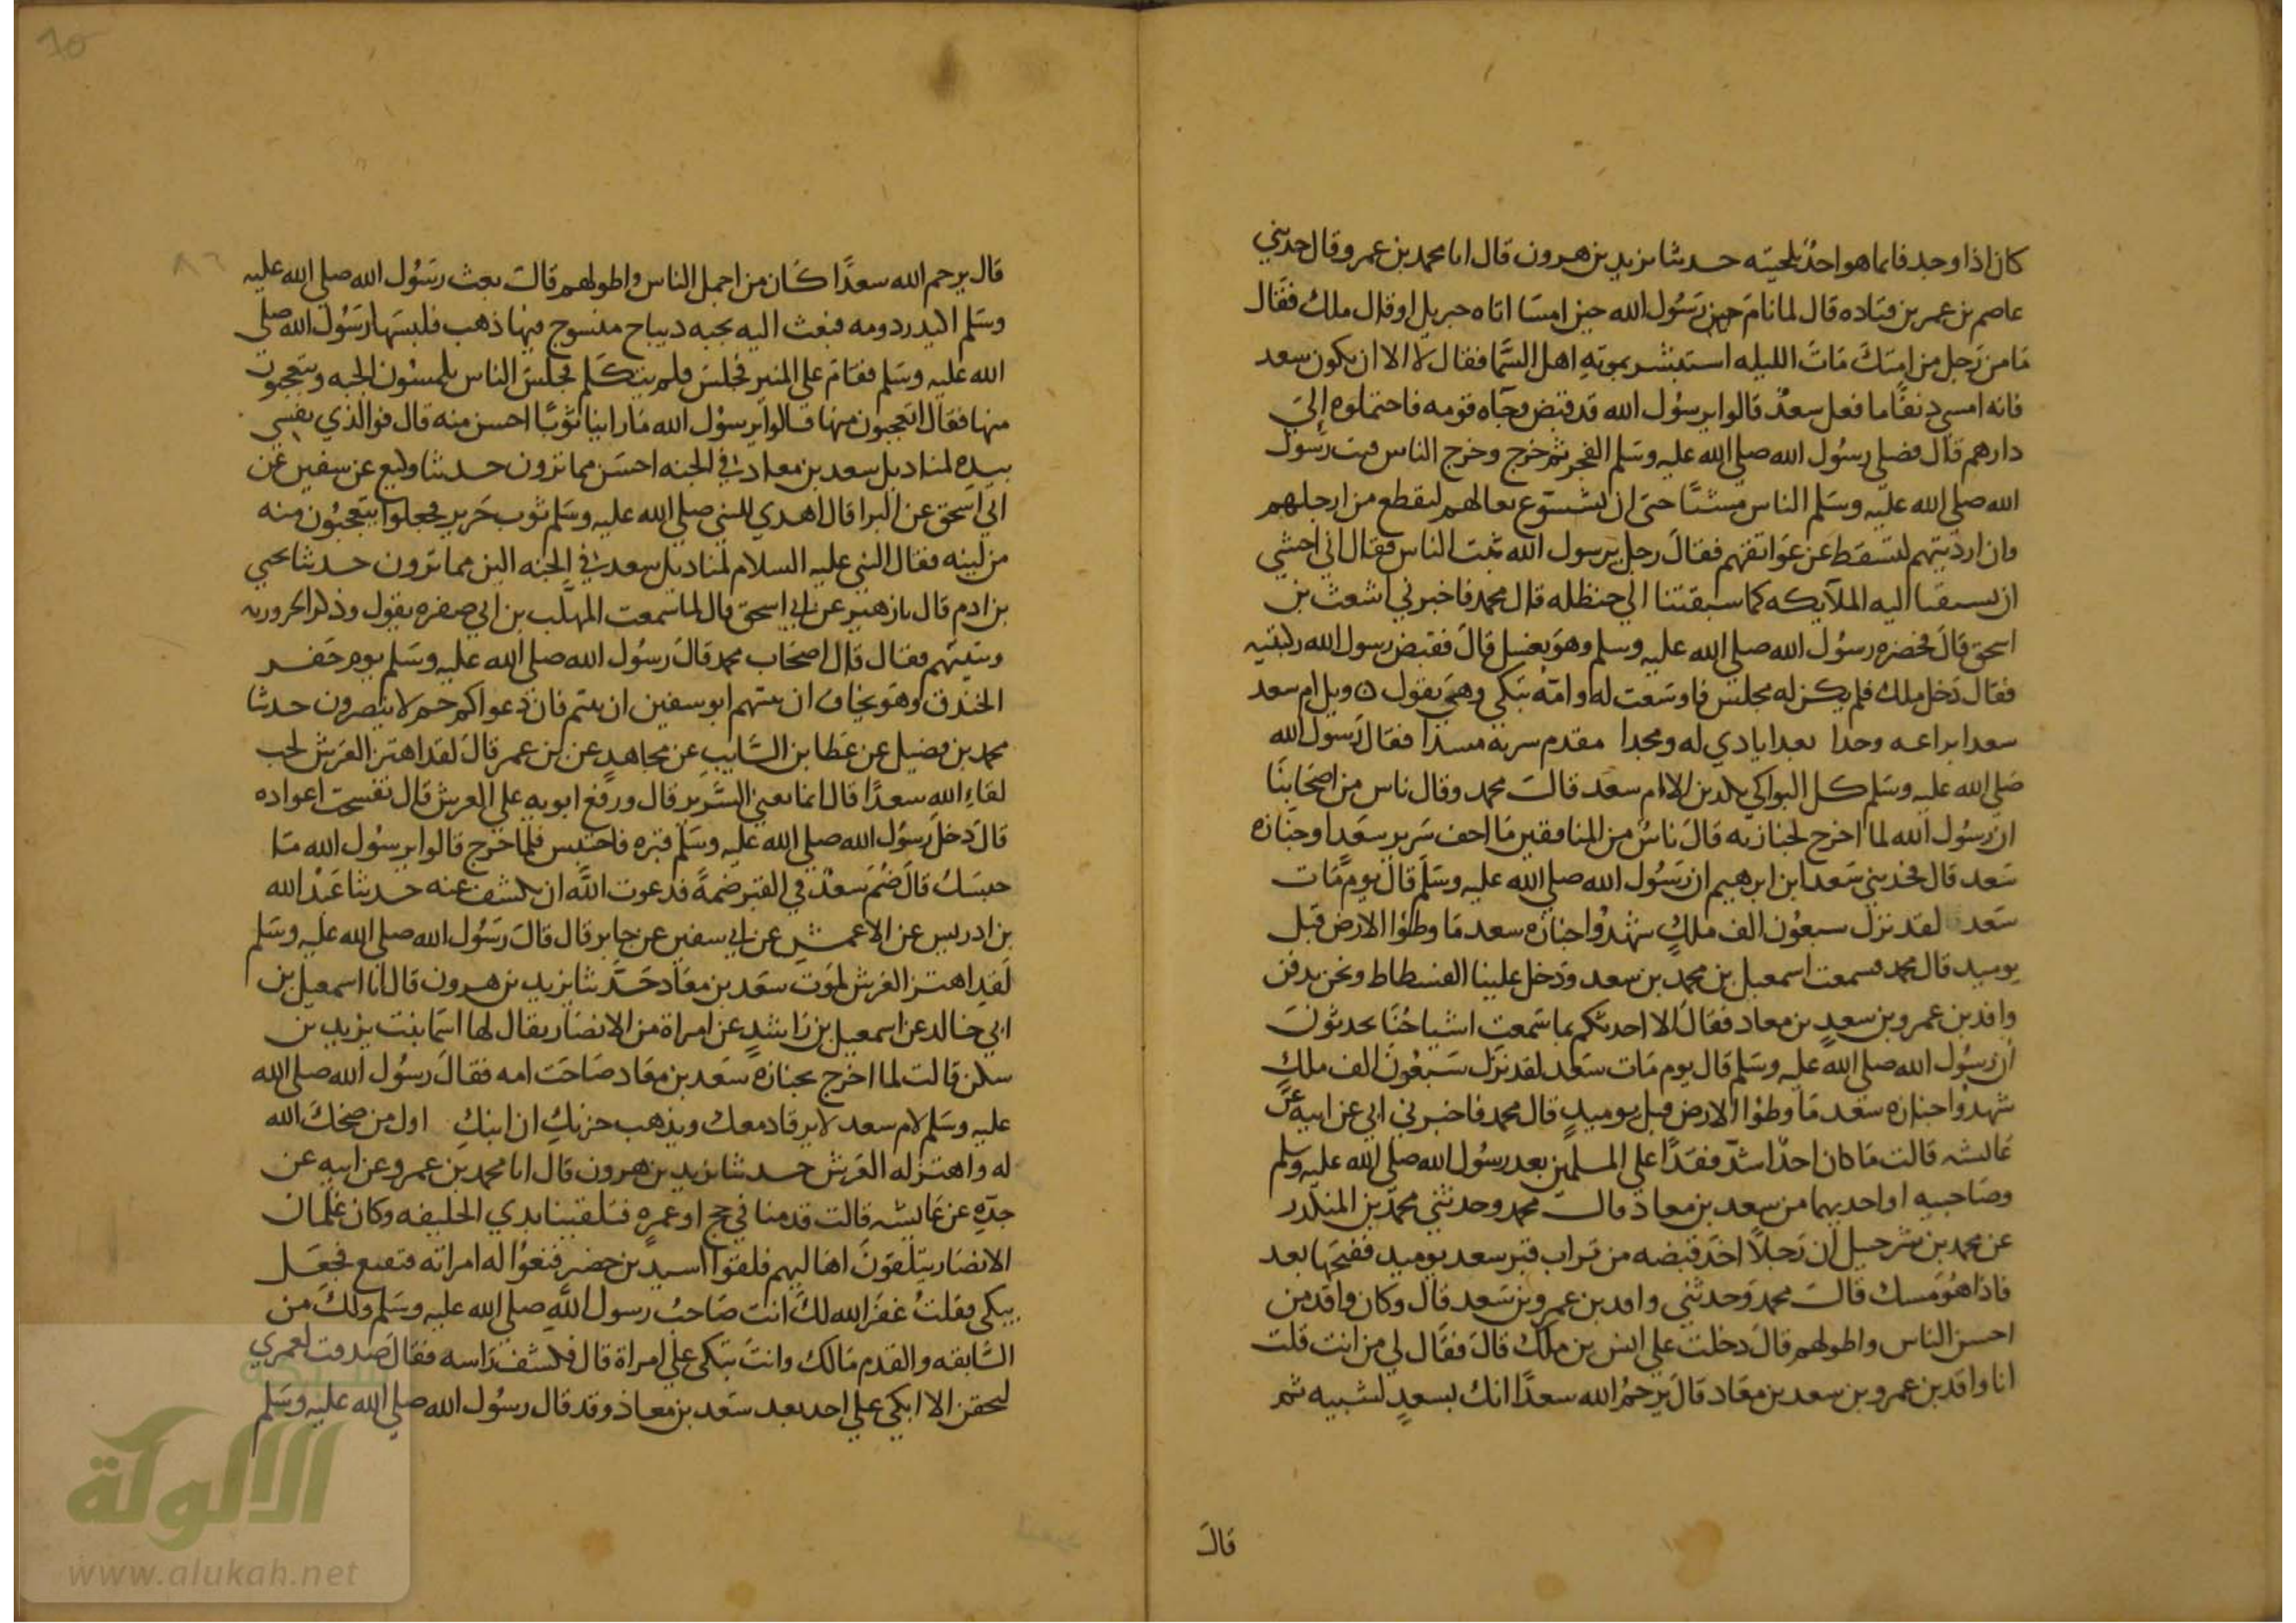 كان اذا وجد فانما هو اخذ بلحيته حدثنا يزيد بن هرون قال انا محمد بن عمرو قال حدثني
عاصم بن عمر بن قتاده قال لما نام حين رسول الله حين امسا اتاه جبريل او قال ملك فقال
ما من رجل من امتك مات الليله استبشر بموته اهل السما فقال لا الا ان يكون سعد
فانه امسى دنفا ما فعل سعد قالوا يرسول الله قد قبض وجاه قومه فاحتملوه إلي
دارهم قال فصلي رسول الله صلي الله عليه وسلم الفجر ثم خرج وخرج الناس فبت رسول
الله صلي الله عليه وسلم الناس مشيا حتى ان شسوع نعالهم لتقطع من ارجلهم
وان ارديتهم لتسقط عن عواتقهم فقال رجل يرسول الله بتت الناس فقال اني اخشي
ان تسبقنا اليه الملآيكه كما سبقتنا الي حنظله قال محمد فاخبرني اشعث بن
اسحق قال فحضره رسول الله صلي الله عليه وسلم وهو يغسل قال فقبض رسول الله ركبتيه
فقال دخل ملك فلم يكن له مجلس فاوسعت له وامه تبكي وهي تقول ه ويل ام سعد
سعدا براعه وحدا بعد ايادي له ومجدا مقدم سر به مسدا فقال رسول الله
صلي الله عليه وسلم كل البواكي يكذبن الا ام سعد قال محمد وقال ناس من اصحابنا
ان رسول الله لما اخرج لجنازته قال ناس من المنافقين ما اخف سرير سعد او جنازه
سعد قال فحدثني سعد ابن ابرهيم ان رسول الله صلي الله عليه وسلم قال يوم مات
سعد لقد نزل سبعون الف ملك شهدوا جنازه سعد ما وطؤا الارض قبل
يوميد قال محمد فسمعت اسمعيل بن محمد بن سعد ودخل علينا الفسطاط ونحن ندفن
واقد بن عمرو بن سعد بن معاد فقال الا احدثكم بما سمعت اشياخنا يحدثون
ان رسول الله صلي الله عليه وسلم قال يوم مات سعد لقد نزل سبعون الف ملك
شهدوا جنازه سعد ما وطؤا الارض قبل يوميد قال محمد فاخبرني ابي عن ابيه عن
عايشه قالت ما كان احد اشد فقدا علي المسلمين بعد رسول الله صلي الله عليه وسلم
وصاحبيه او احديهما من سعد بن معاد قال محمد وحدثني محمد بن المنكدر
عن محمد بن شرحبيل ان رجلا اخذ قبضه من تراب قبر سعد يوميد ففتحها بعد
فاذا هو مسك قال محمد وحدثني واقد بن عمرو بن سعد قال وكان واقد من
احسن الناس واطولهم قال دخلت علي انس بن ملك قال فقال لي من انت قلت
انا واقد بن عمرو بن سعد بن معاد قال يرحم الله سعدا انك بسعد لشبيه ثم
قال
قال يرحم الله سعدا كان من اجمل الناس واطولهم قال بعث رسول الله صلي الله عليه
وسلم اكيدر دومه فبعث اليه بجبه ديباج منسوج فيها ذهب فلبسها رسول الله صلي
الله عليه وسلم فقام علي المنبر فجلس فلم يتكلم فجلس الناس يلمسون الجبه ويتعجبون
منها فقال اتعجبون منها قالوا يرسول الله ما راينا ثوبا احسن منه قال فوالذي نفسي
بيده لمناديل سعد بن معاد في الجنه احسن مما ترون حدثنا وكيع عن سفين عن
ابي اسحق عن البرا قال اهدي للنبي صلي الله عليه وسلم ثوب حرير فجعلوا يتعجبون منه
من لينه فقال النبي عليه السلام لمناديل سعد في الجنه الين مما ترون حدثنا يحيي
بن ادم قال نا زهير عن ابي اسحق قال لما سمعت المهلب بن ابي صفره يقول وذكر الحروريه
وتبيتهم فقال قال اصحاب محمد قال رسول الله صلي الله عليه وسلم يوم حفر
الخندق وهو يخاف ان يبيتهم ابو سفين ان بيتم فان دعواكم حم لا ينصرون حدثنا
محمد بن فضيل عن عطا بن السايب عن مجاهد عن بن عمر قال لقد اهتز العرش لحب
لقاء الله سعدا قال انما يعني السرير قال ورفع ابويه علي العرش قال تفسخت اعواده
قال دخل رسول الله صلي الله عليه وسلم قبره فاحتبس فلما خرج قالوا يرسول الله ما
حبسك قال ضم سعد في القبر ضمة فدعوت الله ان يكشف عنه حدثنا عبد الله
بن ادريس عن الاعمش عن ابي سفين عن جابر قال قال رسول الله صلي الله عليه وسلم
لقد اهتز العرش لموت سعد بن معاد حدثنا يزيد بن هرون قال انا اسمعيل بن
ابي خالد عن اسمعيل بن راشد عن امراة من الانصار يقال لها اسما بنت يزيد بن
سكن قالت لما اخرج بجنازه سعد بن معاد صاحت امه فقال رسول الله صلي الله
عليه وسلم لام سعد لا يرقا دمعك ويذهب حزنك ان ابنك اول من ضحك الله
له واهتز له العرش حدثنا يزيد بن هرون قال انا محمد بن عمرو عن ابيه عن
جده عن عايشه قالت قدمنا في حج او عمره فتلقينا بذي الحليفه وكان غلمان
الانصار يتلقون اهاليهم فلقوا اسيد بن حضير فنعوا له امراته فتقنع فجعل
يبكي فقلت غفر الله لك انت صاحب رسول الله صلي الله عليه وسلم ولك من
السابقه والقدم مالك وانت تبكي علي امراة قال فكشف راسه فقال صدقت لعمري
ليحقن الا ابكي علي احد بعد سعد بن معاذ وقد قال رسول الله صلي الله عليه وسلم
شبكة
الألوكة
www.alukah.net